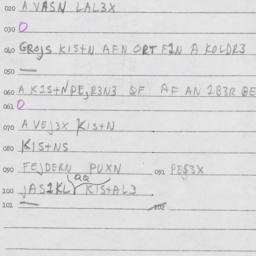 020 A VASN LAL3X
030 O
040 GROjS KIS+N AFN ORT FIN A KOLDR3
050 —
060 A KIS+NPEjR3N3 OF AF AN IB3R BE
061 O
070 A VEj3X KIS+N
080 KIS+NS
090 FEjDERN PUXN 091 PES3X
aa
100 jASIKL KIS+AL3
101 —